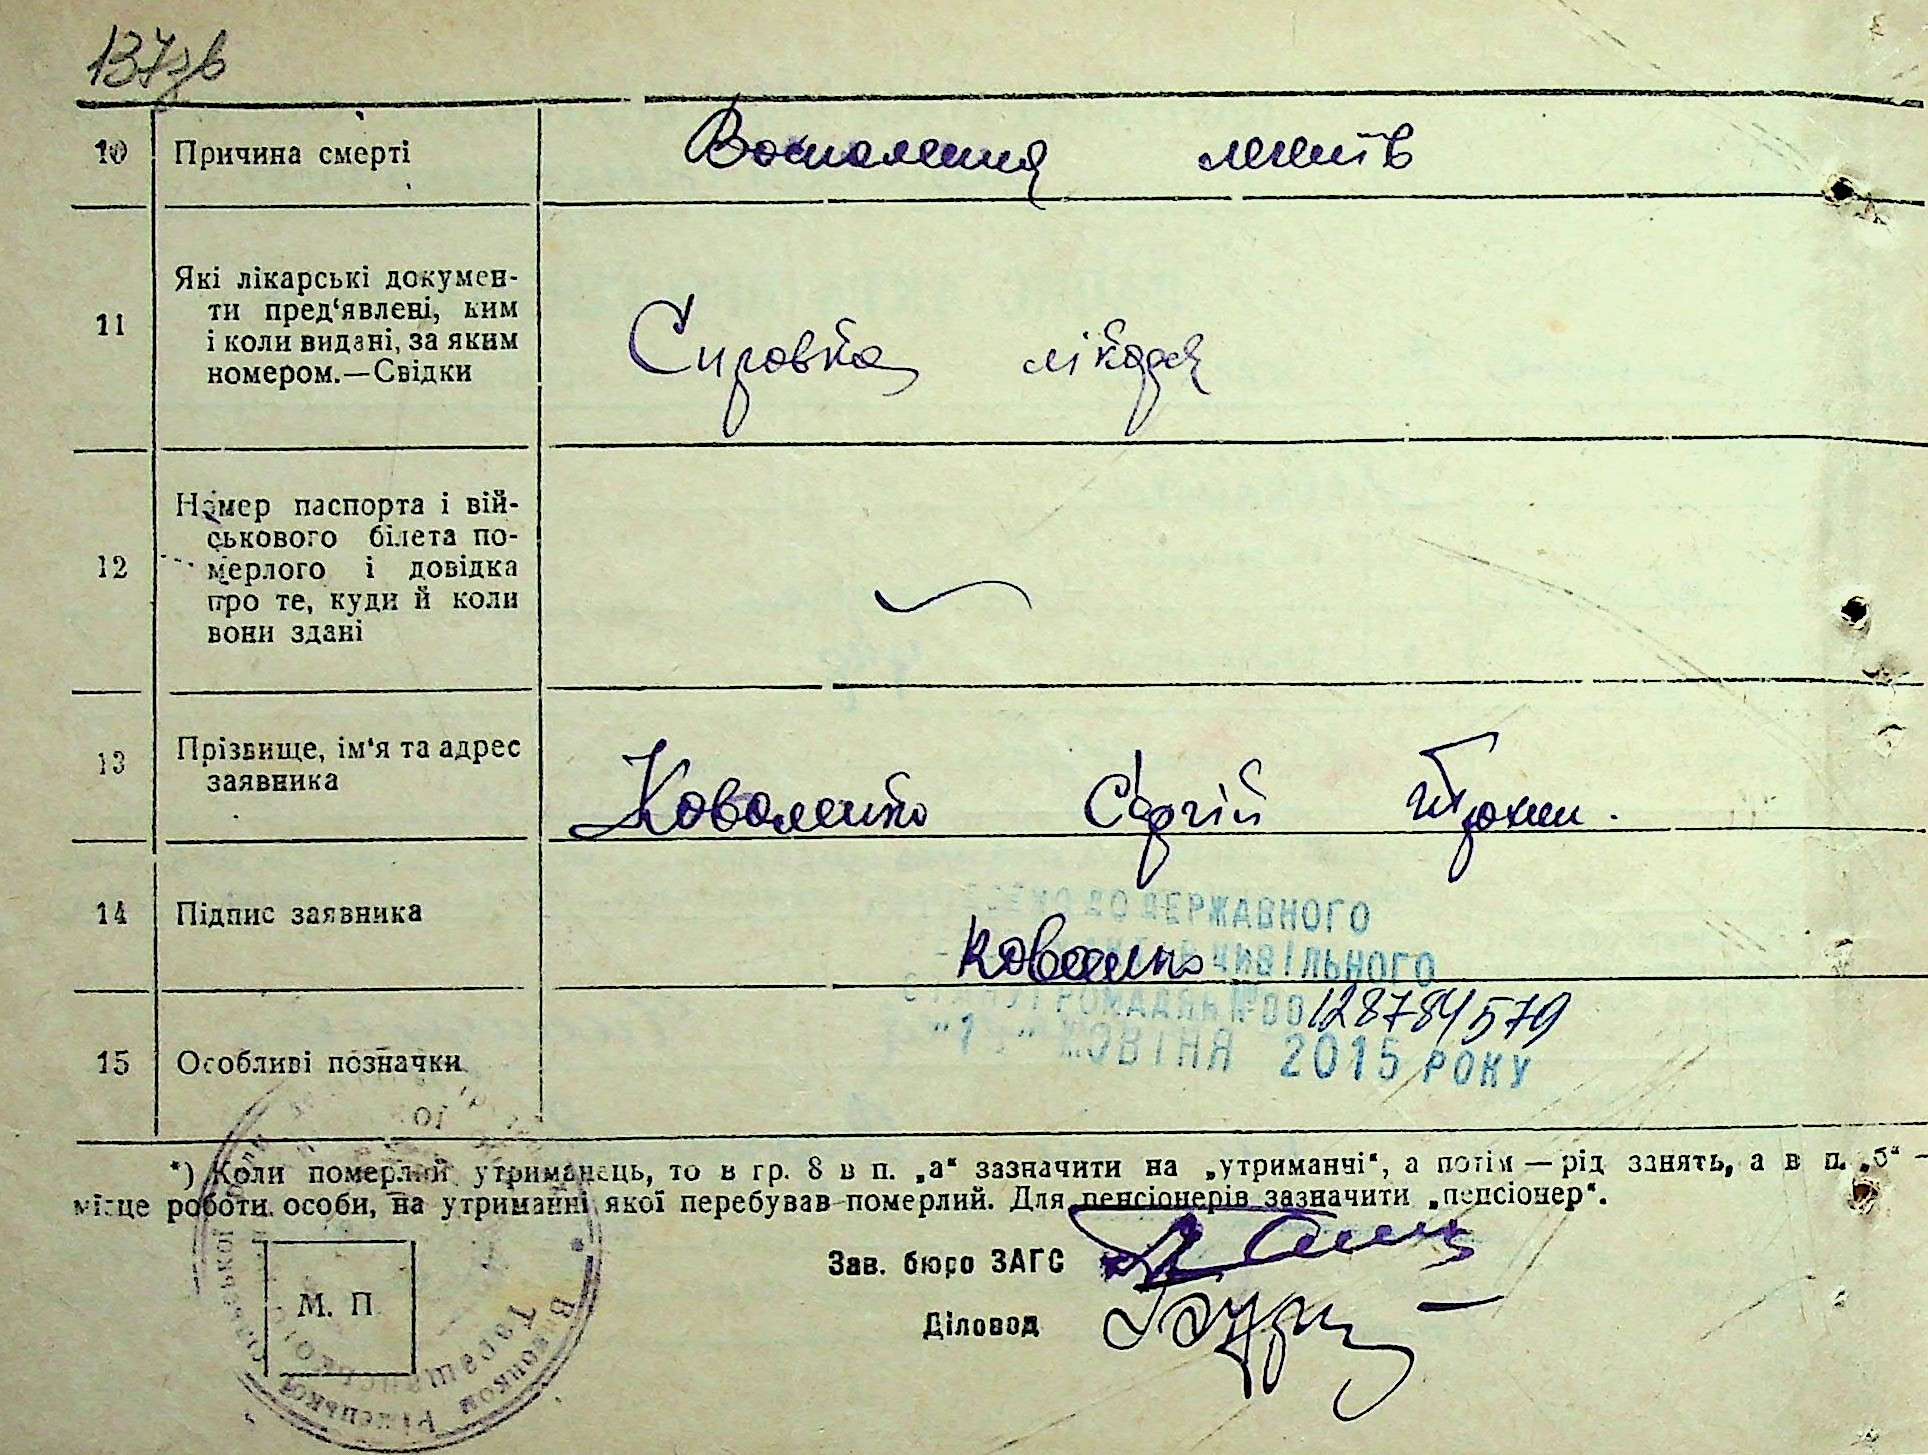 137зв
10 Причина смерті Воспаления легків
11 Які лікарські докумен-
ти пред‘явлені, ким
і коли видані, за яким
номером.—Свідки
Справка лікаря
12 Номер паспорта і вій-
ськового білета по-
мерлого і довідка
про те, куди й коли
вони здані
13 Прізвище, ім‘я та адрес
заявника
Коваленко Сергій
14 Підпис заявника
ДО ДЕРЖАВНОГО
ЦИВІЛЬНОГО
ГРОМАДЯН №00128784579
ЖОВТНЯ 2015 РОКУ
15 Особливі позначки
*) Коли померлий утриманець, то в гр. 8 в п. „а“ зазначити на „утриманчі“, а потім — рід занять, а в п. „б“ —
місце роботи особи, на утриманні якої перебував померлий. Для пенсіонерів зазначити „пенсіонер“.
Зав. бюро ЗАГС
М. П.
Діловод